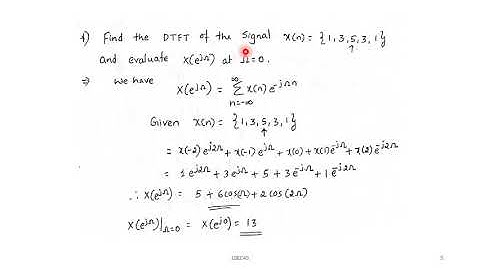 1) Find the DTFT of the signal x(n) = {1, 3, 5, 3, 1}
↑
and evaluate X(e^jΩ) at Ω=0.
⇒ We have
X(e^jΩ) = ∑ x(n) e^-jΩn
∞
n=-∞
Given x(n) = {1, 3, 5, 3, 1}
↑
= x(-2) e^j2Ω + x(-1) e^jΩ + x(0) + x(1) e^-jΩ + x(2) e^-j2Ω
= 1 e^j2Ω + 3 e^jΩ + 5 + 3 e^-jΩ + 1 e^-j2Ω
∴ X(e^jΩ) = 5 + 6 cos(Ω) + 2 cos(2Ω)
X(e^jΩ)|Ω=0 = X(e^j0) = 13
5